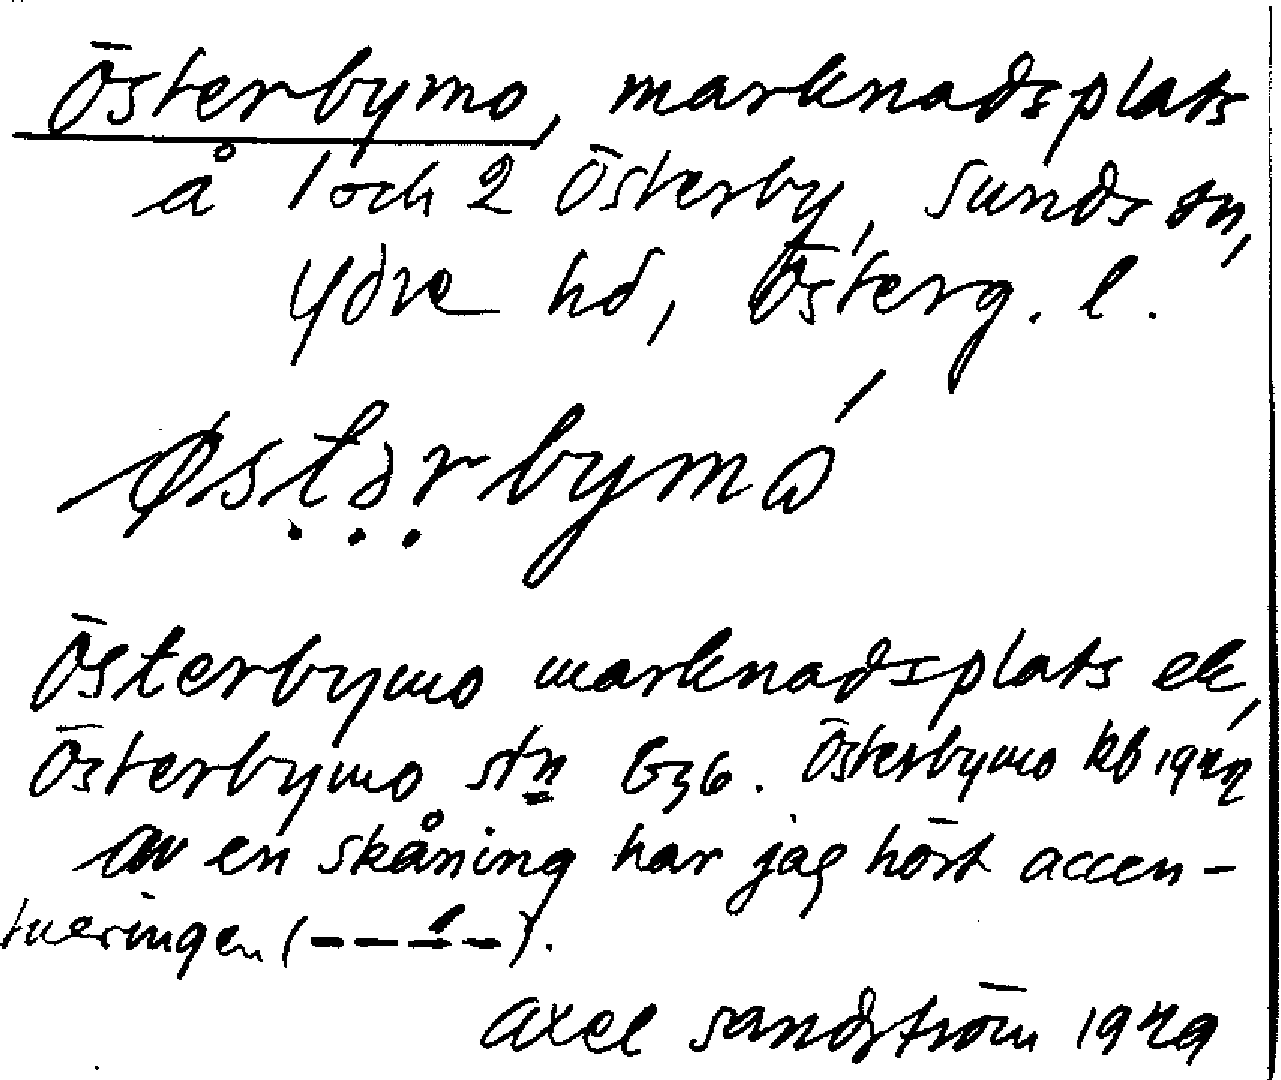 Österbymo, marknadsplats
å 1 och 2 Österby, Sunds sn,
Ydre hd, Österg. l.
Østərbymω´
Österbymo marknadsplats ek,
Österbymo stn G36. Österbymo kb 1942
av en skåning har jag hört accen-
tueringen (– – –́ –).
Axel Sandström 1949